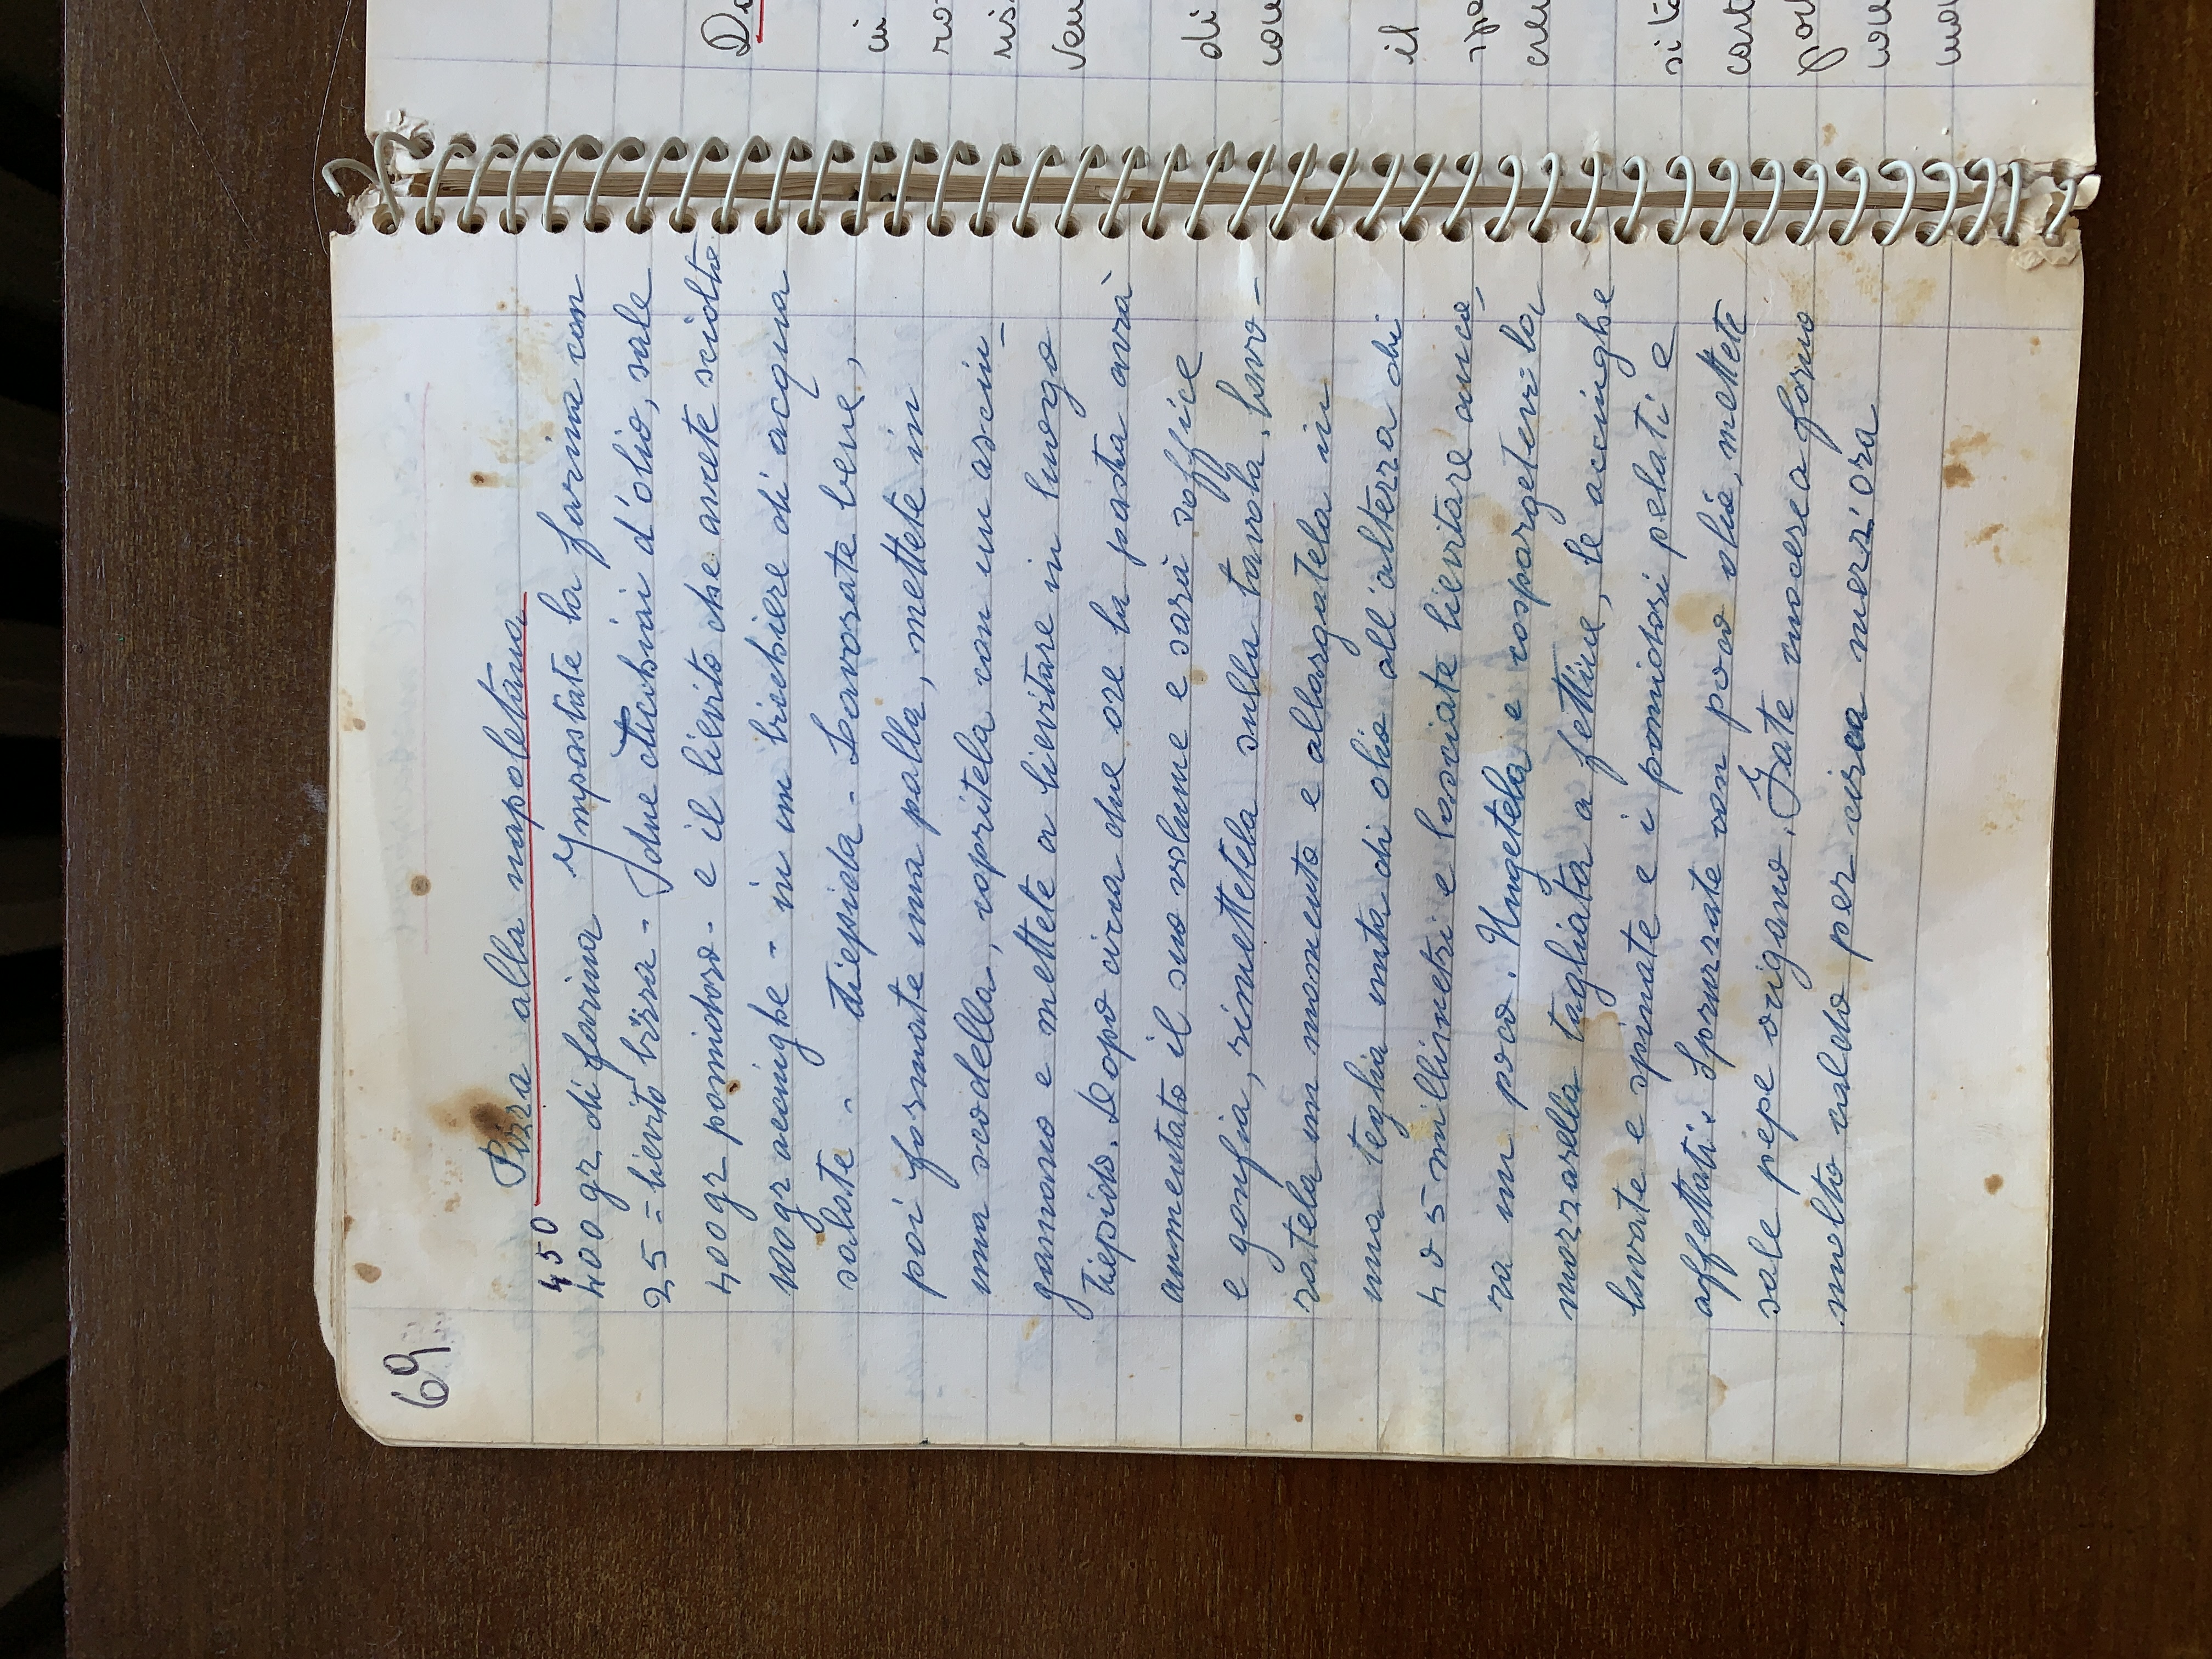 69
Pizza alla napoletana
450
400 gr di farina Impastate la farina con
25 = lievito birra - due cucchiai d'olio, sale
400 gr pomidoro - e il lievito che avrete sciolto
100 gr acciughe - in un bicchiere di acqua
salate - tiepida - Lavorate bene,
poi formate una palla, mettete in
una scodella, copritela con un asciu-
gamano e mettete a lievitare in luogo
tiepido. Dopo circa due ore la pasta avrà
aumentato il suo volume e sarà soffice
e gonfia, rimettetela sulla tavola, lavo-
ratela un momento e allargatela in
una teglia unta di olio all'altezza di
4 o 5 millimetri e lasciate lievitare anco-
ra un poco. Ungetela e cospargetevi la
mozzarella tagliata a fettine, le acciughe
lavate e spinate e i pomidori pelati e
affettati. Spruzzate con poco olio, mettete
sale pepe origano. Fate cuocere a forno
molto caldo per circa mezz'ora
in
ven
di
il